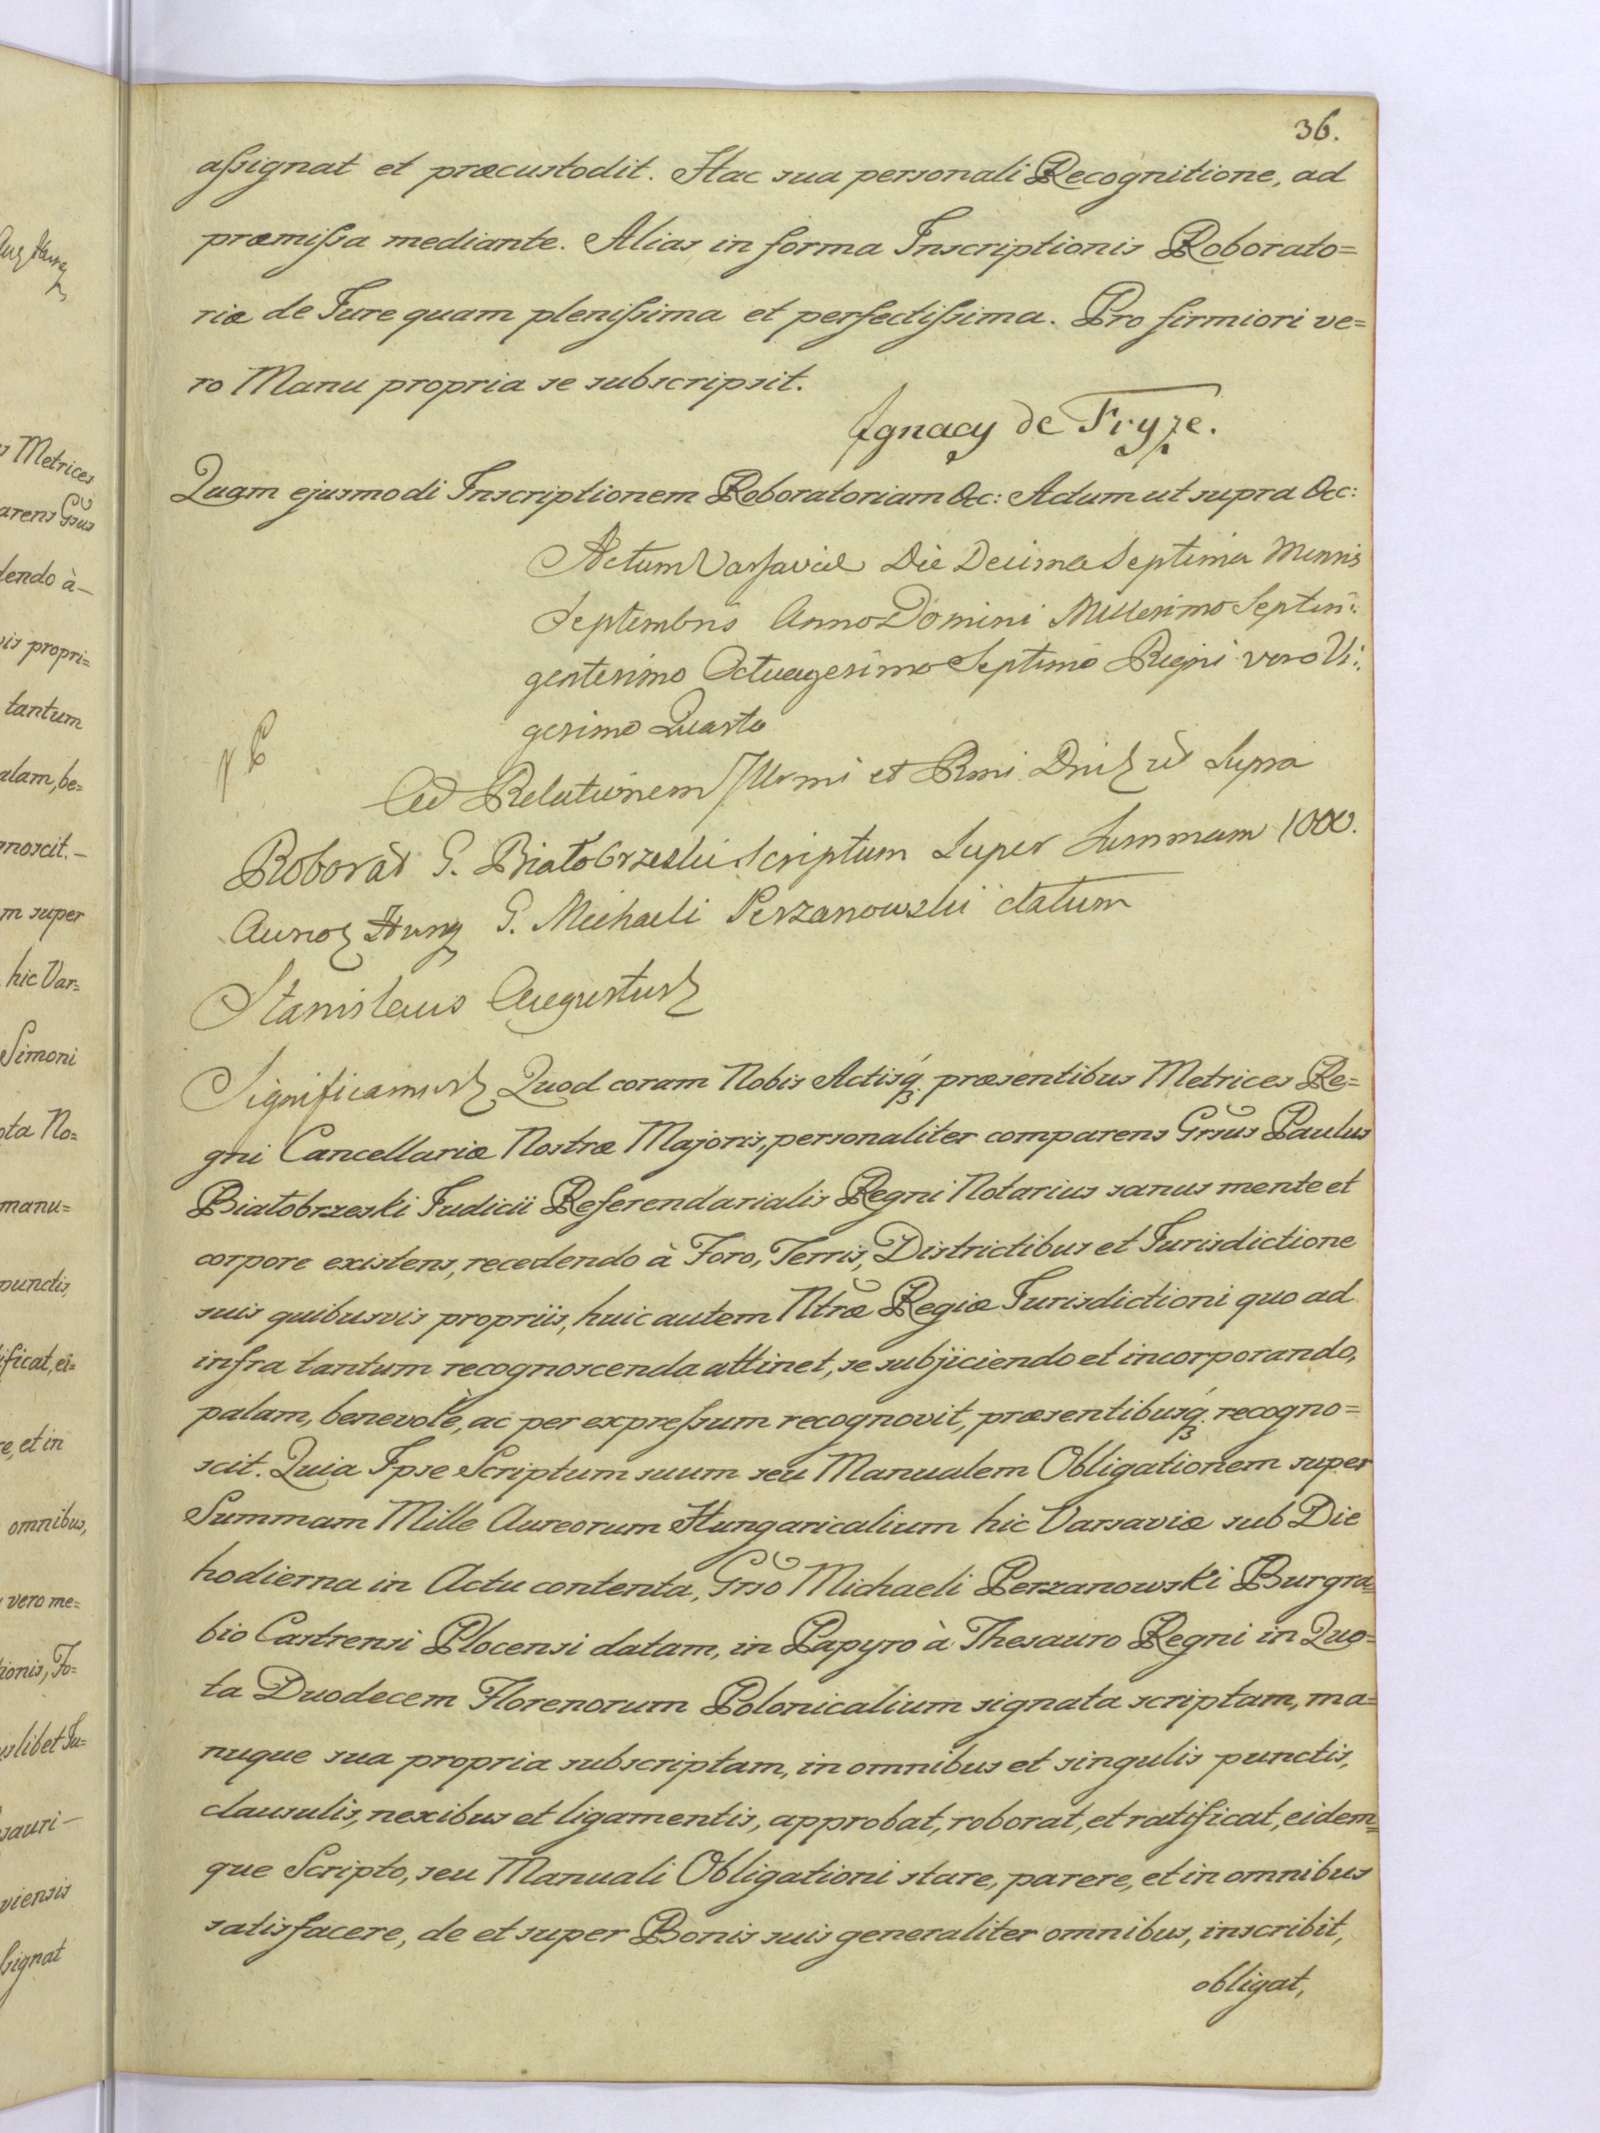 36.
assignat et præcustodit. Hac sua personali Recognitione, ad
præmissa mediante. Alias in forma Inscriptionis Roborato=
riæ de Jure quam plenissima et perfectissima. Pro firmiori ve=
ro Manu propria se subscripsit.
Ignacy de Fryze.
Quam ejusmodi Inscriptionem Roboratoriam &c: Actum ut supra &c:
Actum Varsaviæ Die Decima Septima Mensis
Septembris Anno Domini Millesimo Septin:
gentesimo Octuagesimo Septimo Regni vero Vi:
gesimo Quarto
Ad Relationem Illrmi et Rmi Dni ut Supra
Roborat G. Białobrzeski Scriptum Super Summam 1000.
Aureor Hung G. Michaeli Perzanowski datum
Stanislaus Augustus
Significamus Quod coram Nobis Actisq. præsentibus Metrices Re=
gni Cancellariæ Nostræ Majoris, personaliter comparens Grsus Paulus
Białobrzeski Judicii Referendarialis Regni Notarius sanus mente et
corpore existens, recedendo à Foro, Terris, Districtibus et Jurisdictione
suis quibusvis propriis, huic autem Ntræ Regiæ Jurisdictioni quo ad
infra tantum recognoscenda attinet, se subjiciendo et incorporando,
palam, benevolè, ac per expressum recognovit, præsentibusq. recogno=
scit. Quia Ipse Scriptum suum seu Manualem Obligationem super
Summam Mille Aureorum Hungaricalium hic Varsaviæ sub Die
hodierna in Actu contenta, Grso Michaeli Perzanowski Burgra=
bio Castrensi Plocensi datam, in Papyro à Thesauro Regni in Quo=
ta Duodecem Florenorum Polonicalium signata scriptam, ma=
nuque sua propria subscriptam, in omnibus et singulis punctis,
clausulis, nexibus et ligamentis, approbat, roborat, et ratificat, eidem=
que Scripto, seu Manuali Obligationi stare, parere, et in omnibus
satisfacere, de et super Bonis suis generaliter omnibus, inscribit,
obligat,